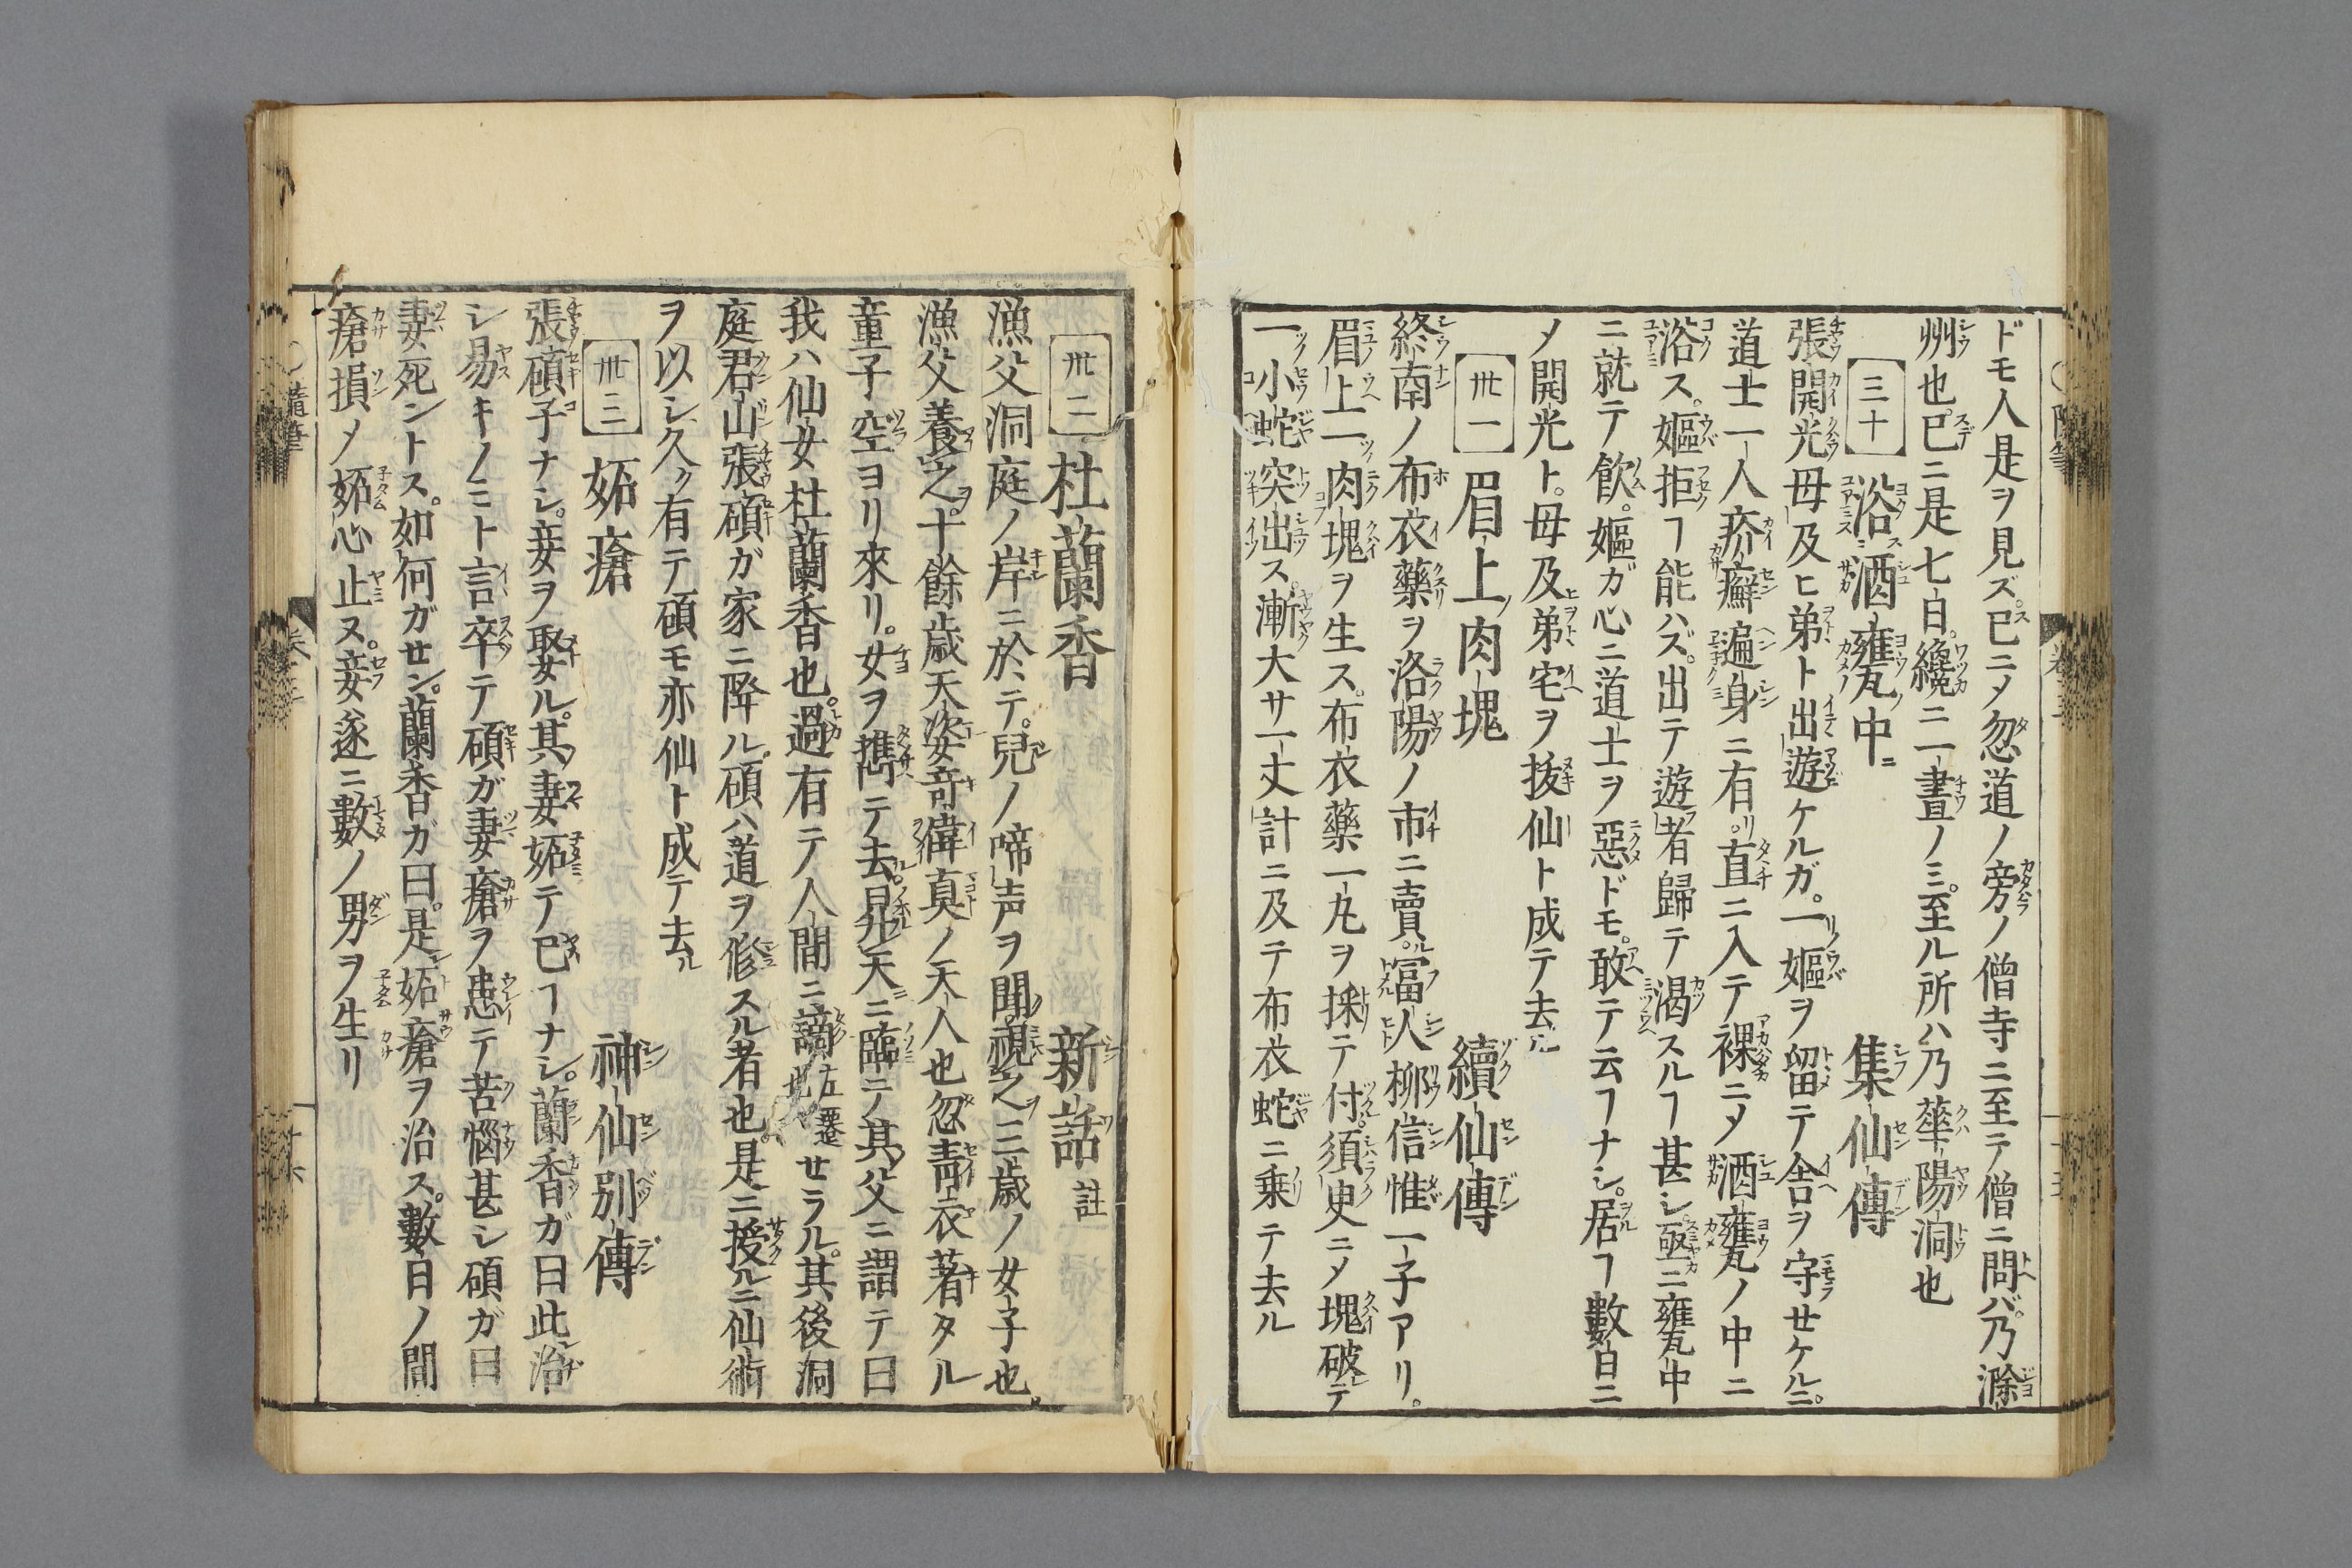 ドモ人是ヲ見ズ。巳ニメ忽道ノ旁ノ僧寺ニ至テ僧ニ問バ。乃滁
州也。巳ニ是七日。纔ニ一晝ノミ。至ル所ハ乃華陽洞也
三十 浴酒甕中 集仙傳
張開光母及ヒ弟ト出遊ケルガ。一嫗ヲ留テ舎ヲ守セケルニ。
道士一人疥癬遍身ニ有。直ニ入テ裸ニメ酒甕ノ中ニ
浴ス。嫗拒ヿ能ハズ。出テ遊者歸テ渇スルヿ甚シ亟ニ甕中
ニ就テ飲。嫗ガ心ニ道士ヲ惡ドモ。敢テ云フヿナシ。居ヿ數日ニ
メ開光ト。母及弟宅ヲ抜仙ト成テ去ル
卅一 眉上肉塊 續仙傳
終南ノ布衣藥ヲ洛陽ノ市ニ賣。富人柳信惟一子アリ。
眉上一肉塊ヲ生ス。布衣藥一丸ヲ採テ付。須史ニメ塊破テ
一小蛇突出ス。漸大サ一丈計ニ及テ布衣蛇ニ乗テ去ル
卅二 杜蘭香 新話註
漁父洞庭ノ岸ニ於テ。兒ノ啼声ヲ聞。視之三歳ノ女子也。
漁父養之。十餘歳天姿奇偉真ノ天人也忽青衣著タル
童子空ヨリ來リ。女ヲ攜テ去昇天ニ臨ニテ其父ニ謂テ曰
我ハ仙女杜蘭香也。過有テ人間ニ謫左遷也セラル。其後洞
庭君山張碩ガ家ニ降ル。碩ハ道ヲ修スル者也。是ニ授ルニ仙術
ヲ以シ久ク有テ碩モ亦仙ト成テ去ル
卅三 妬瘡 神仙別傳
張碩子ナシ。妾ヲ娶ル。其妻妬テ巳ヿナシ。蘭香ガ曰此治
シ易キノミト言卒テ碩ガ妻瘡ヲ患テ苦惱甚シ碩ガ曰
妻死ントス。如何ガせン。蘭香ガ曰。是妬瘡ヲ治ス。數日ノ間
瘡損メ妬心止ヌ。妾遂ニ數ノ男ヲ生リ